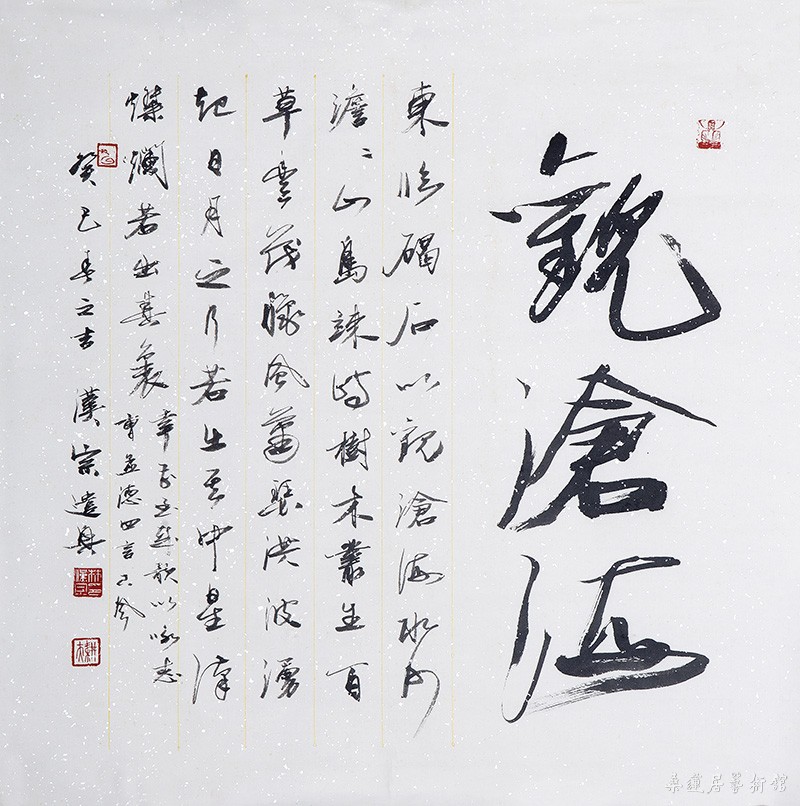 觀滄海
東臨碣石以觀滄海水何
澹〻山島竦峙樹木叢生百
草豐茂秋風蕭瑟洪波湧
起日月之行若出其中星漢
燦爛若出其裏
幸甚至哉歌以咏志
曹孟德四言風
癸巳春之吉 漢宗遣興
蓮居藝術館